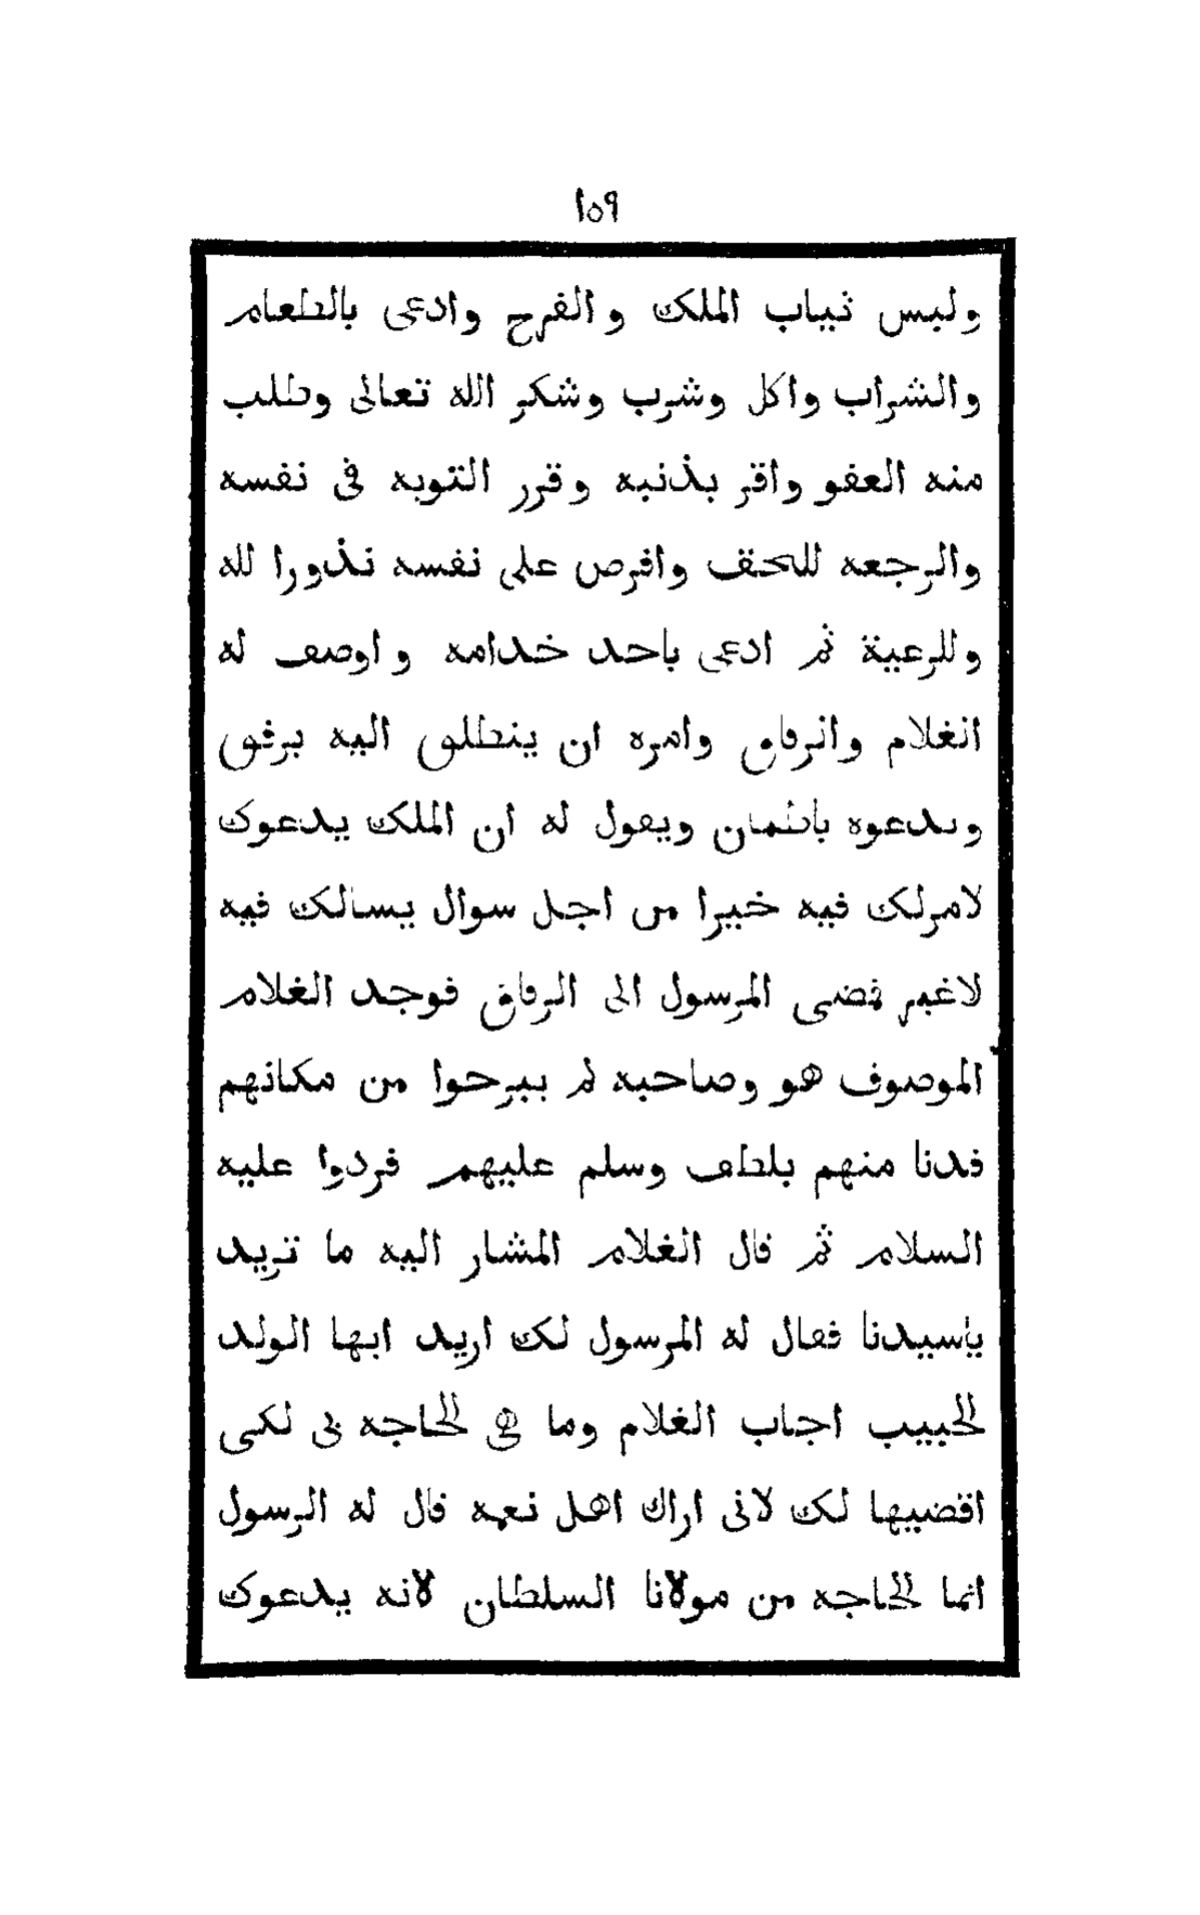 ١٥٩
ولبس ثياب الملك والفرح وادعى بالطعام
والشراب واكل وشرب وشكر الله تعالى وطلب
منه العفو واقر بذنبه وقرر التوبه فى نفسه
والرجعه للحق وافرص على نفسه نذورا لله
وللرعية ثم ادعى باحد خدامه واوصف له
الغلام والرفاق وامره ان ينطلق اليه برفق
ويدعوه باطمان ويقول له ان الملك يدعوك
لامرلك فيه خيرا من اجل سوال يسالك فيه
لاغير فمضى المرسول الى الرفاق فوجد الغلام
الموصوف هو وصاحبه لم يبرحوا من مكانهم
فدنا منهم بلطف وسلم عليهم فردوا عليه
السلام ثم قال الغلام المشار اليه ما تريد
ياسيدنا فقال له المرسول لك اريد ايها الولد
الحبيب اجاب الغلام وما هى الحاجه بى لكى
اقضيها لك لانى اراك اهل نعمه قال له الرسول
انما الحاجه من مولانا السلطان لانه يدعوك